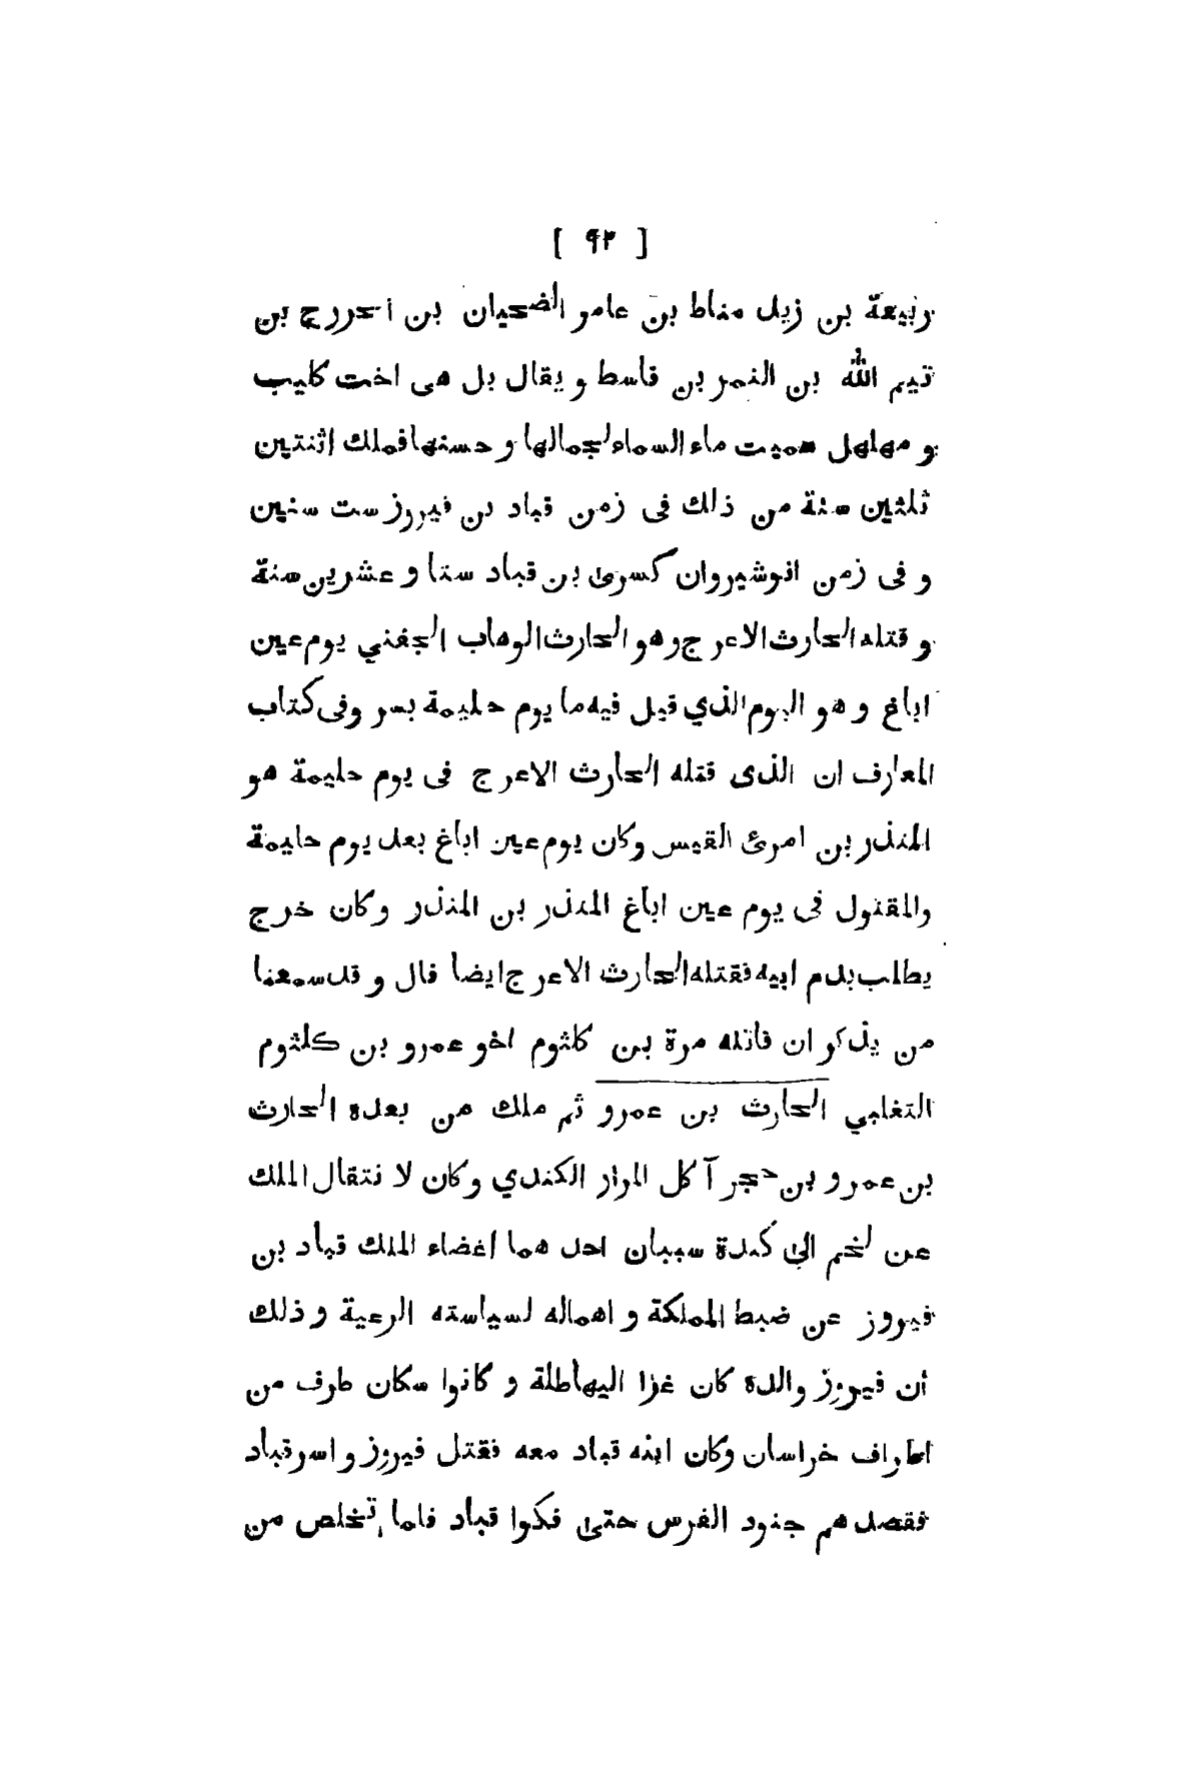 [ ٩٣ ]
ربيعة بن زيد مناط بن عامر الضحيان بن الخزرج بن
تيم الله بن النمر بن قاسط و يقال بل هى اخت كليب
و مهلهل سميت ماء السماء لجمالها و حسنها فملك اثنتين
ثلثين سنة من ذلك فى زمن قباد بن فيروز ست سنين
و فى زمن انوشيروان كسرى بن قباد ستا و عشرين سنة
و قتله الحارث الاعرج و هو الحارث الوهاب الجفني يوم عين
اباغ و هو اليوم الذي قيل فيه ما يوم حليمة بسر وفى كتاب
المعارف ان الذى قتله الحارث الاعرج فى يوم حليمة هو
المنذر بن امرئ القيس وكان يوم عين اباغ بعد يوم حليمة
والمقتول فى يوم عين اباغ المنذر بن المنذر وكان خرج
يطلب بدم ابيه فقتله الحارث الاعرج ايضا قال و قد سمعنا
من يذكر ان قاتله مرة بن كلثوم اخو عمرو بن كلثوم
التغلبي الحارث بن عمرو ثم ملك من بعده الحارث
بن عمرو بن حجر آكل المرار الكندي وكان لا نتقال الملك
عن لخم الى كندة سببان احد هما اغضاء الملك قباد بن
فيروز عن ضبط المملكة و اهماله لسياسته الرعية و ذلك
أن فيروز والده كان غزا اليهاطلة و كانوا سكان طرف من
اطراف خراسان وكان ابنه قباد معه فقتل فيروز و اسر قباد
فقصد هم جنود الفرس حتى فكوا قباد فلما تخلص من